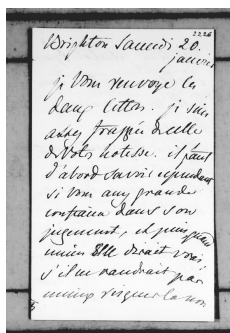 2226
Brighton Samedi 20.
janvier
je vous renvoye les
deux lettres. je suis
assez frappée de celle
de votre hotesse. il faut
d'abord savoir cependant
si vous avez grande
confiance dans son
jugement, et puis
mieux Elle dirait vrai
s'il ne vaudrait pas
mieux risquer le non